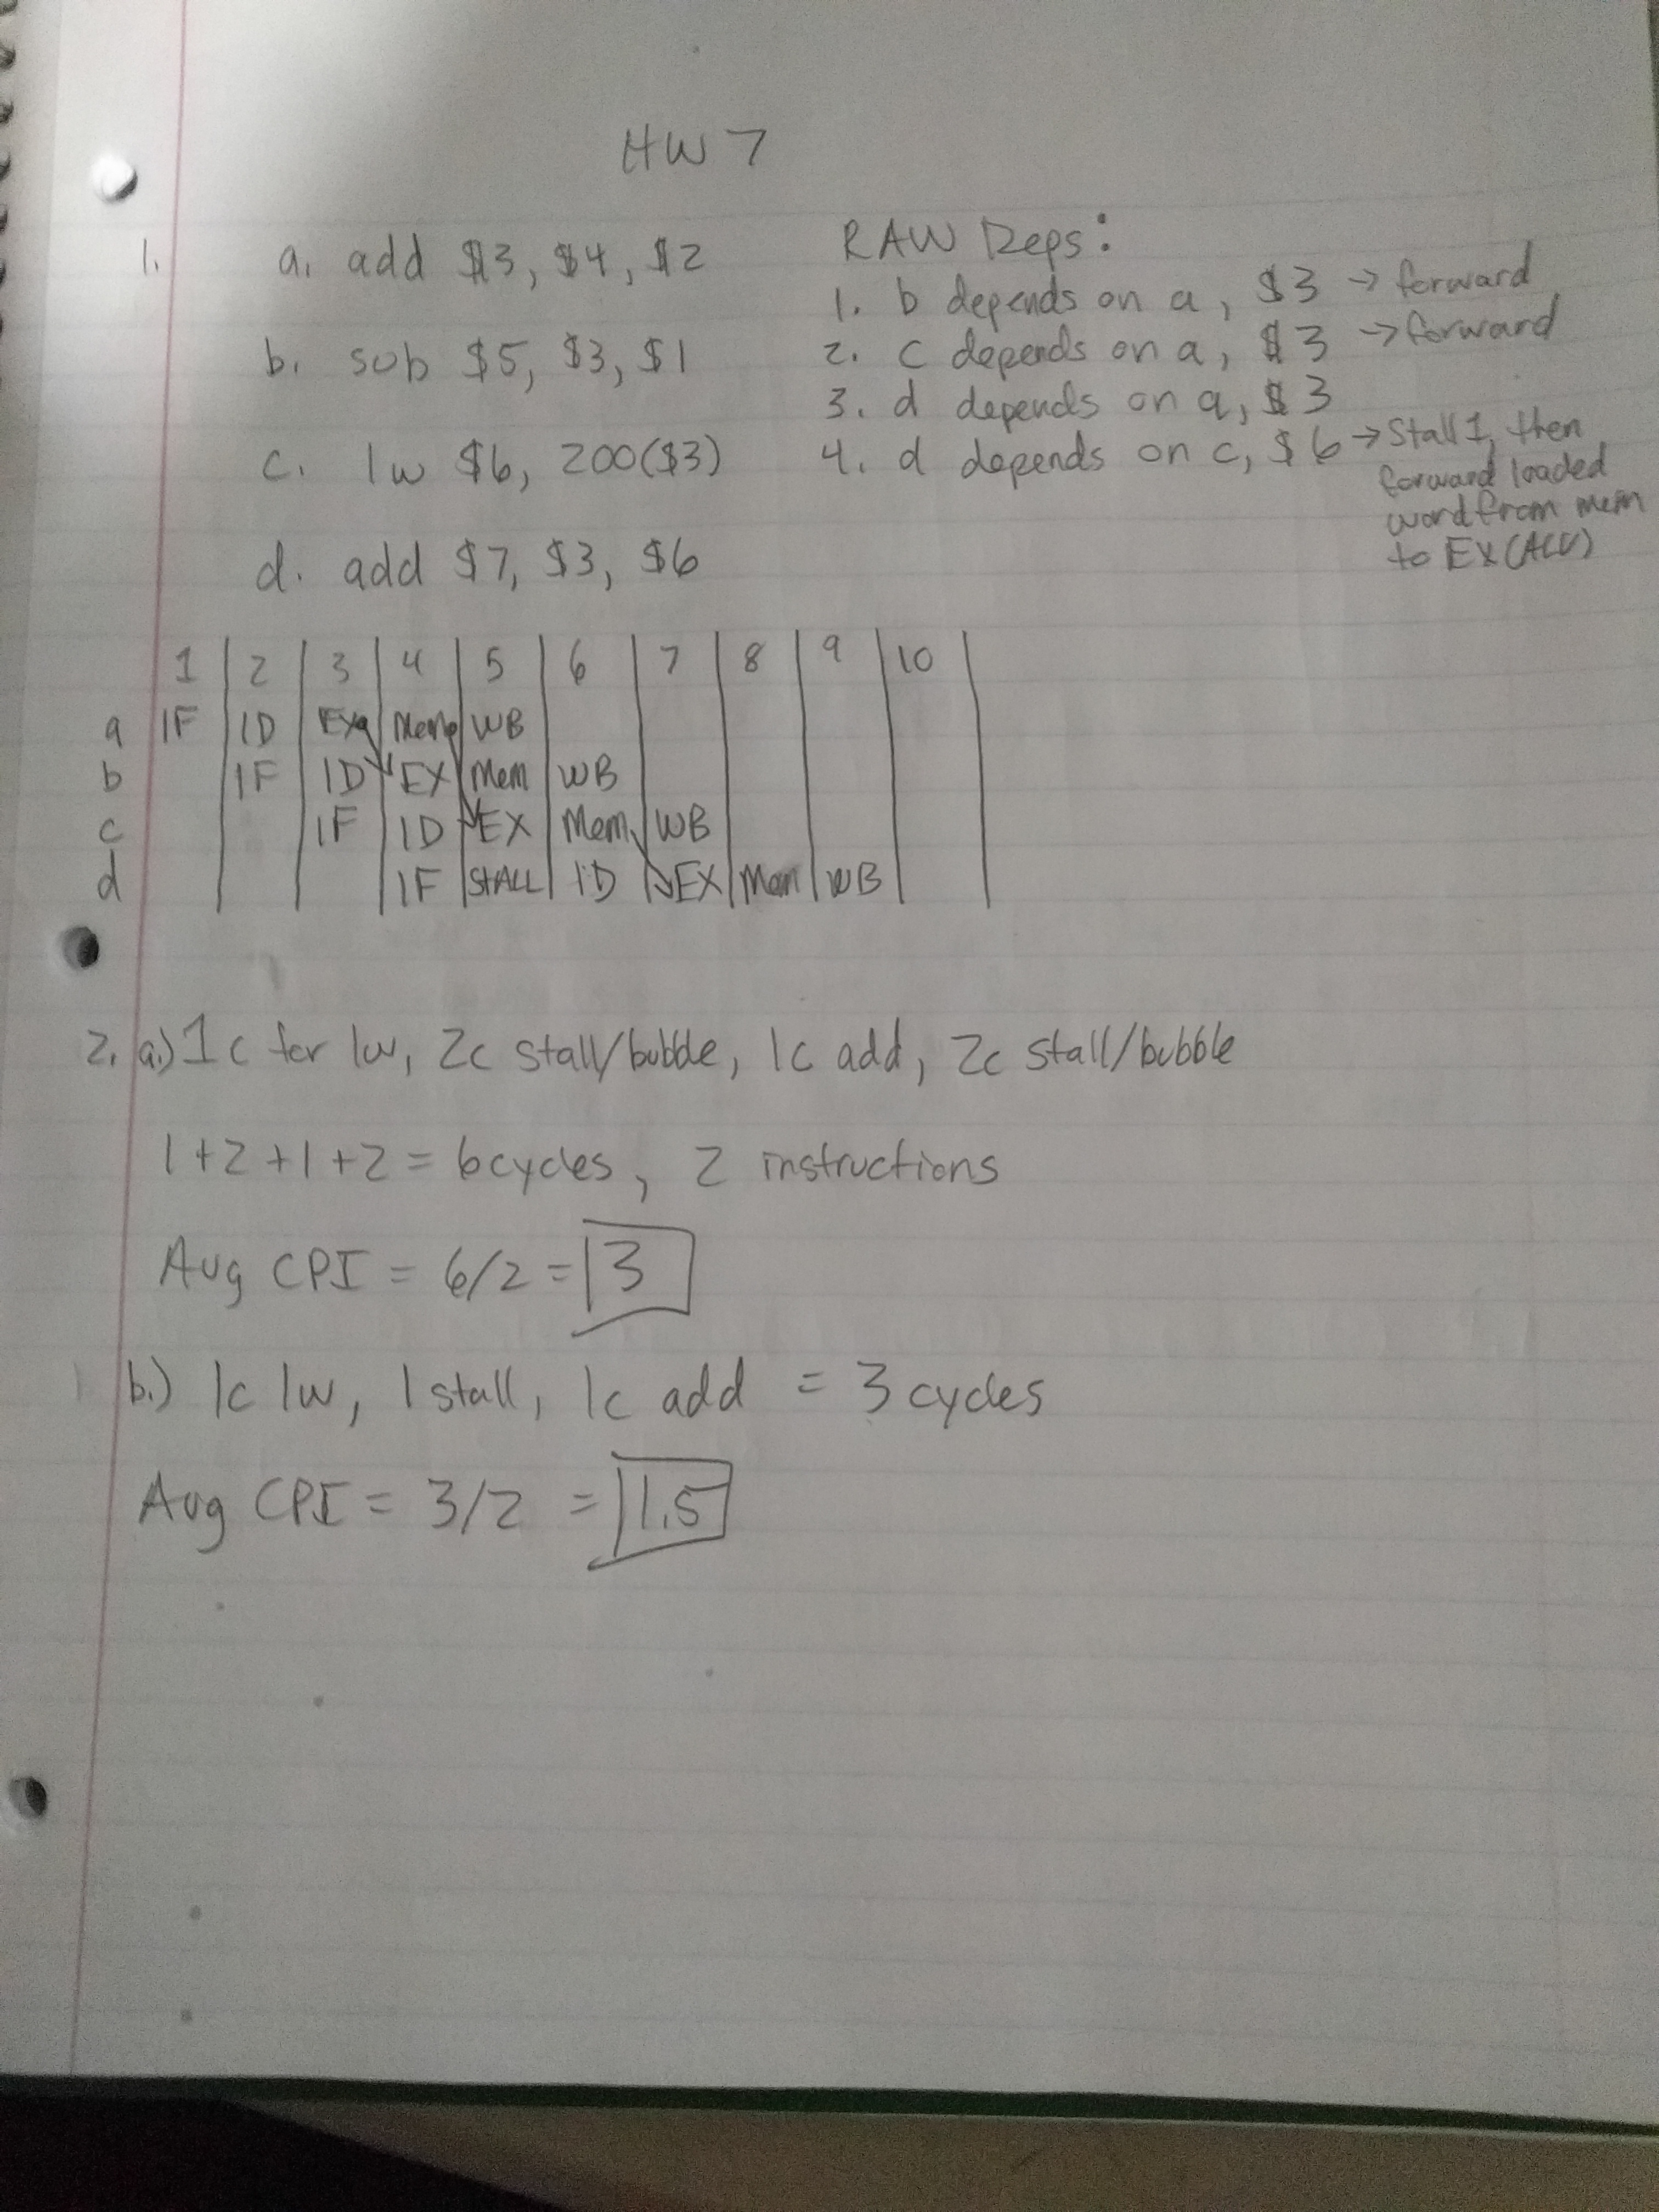 HW 7
1. a. add $3, $4, $2
b. sub $5, $3, $1
c. lw $6, 200($3)
d. add $7, $3, $6
RAW Deps:
1. b depends on a, $3 → forward
2. c depends on a, $3 → forward
3. d depends on a, $3
4. d depends on c, $6 → Stall 1, then
forward loaded
word from mem
to EX(ALU)
1 2 3 4 5 6 7 8 9 10
a IF ID EX Mem WB
b IF ID EX Mem WB
c IF ID EX Mem WB
d IF STALL ID EX Mem WB
2. a.) 1c for lw, 2c stall/bubble, 1c add, 2c stall/bubble
1+2+1+2 = 6cycles, 2 instructions
Avg CPI = 6/2 = 3
b.) 1c lw, 1 stall, 1c add = 3 cycles
Avg CPI = 3/2 = 1.5